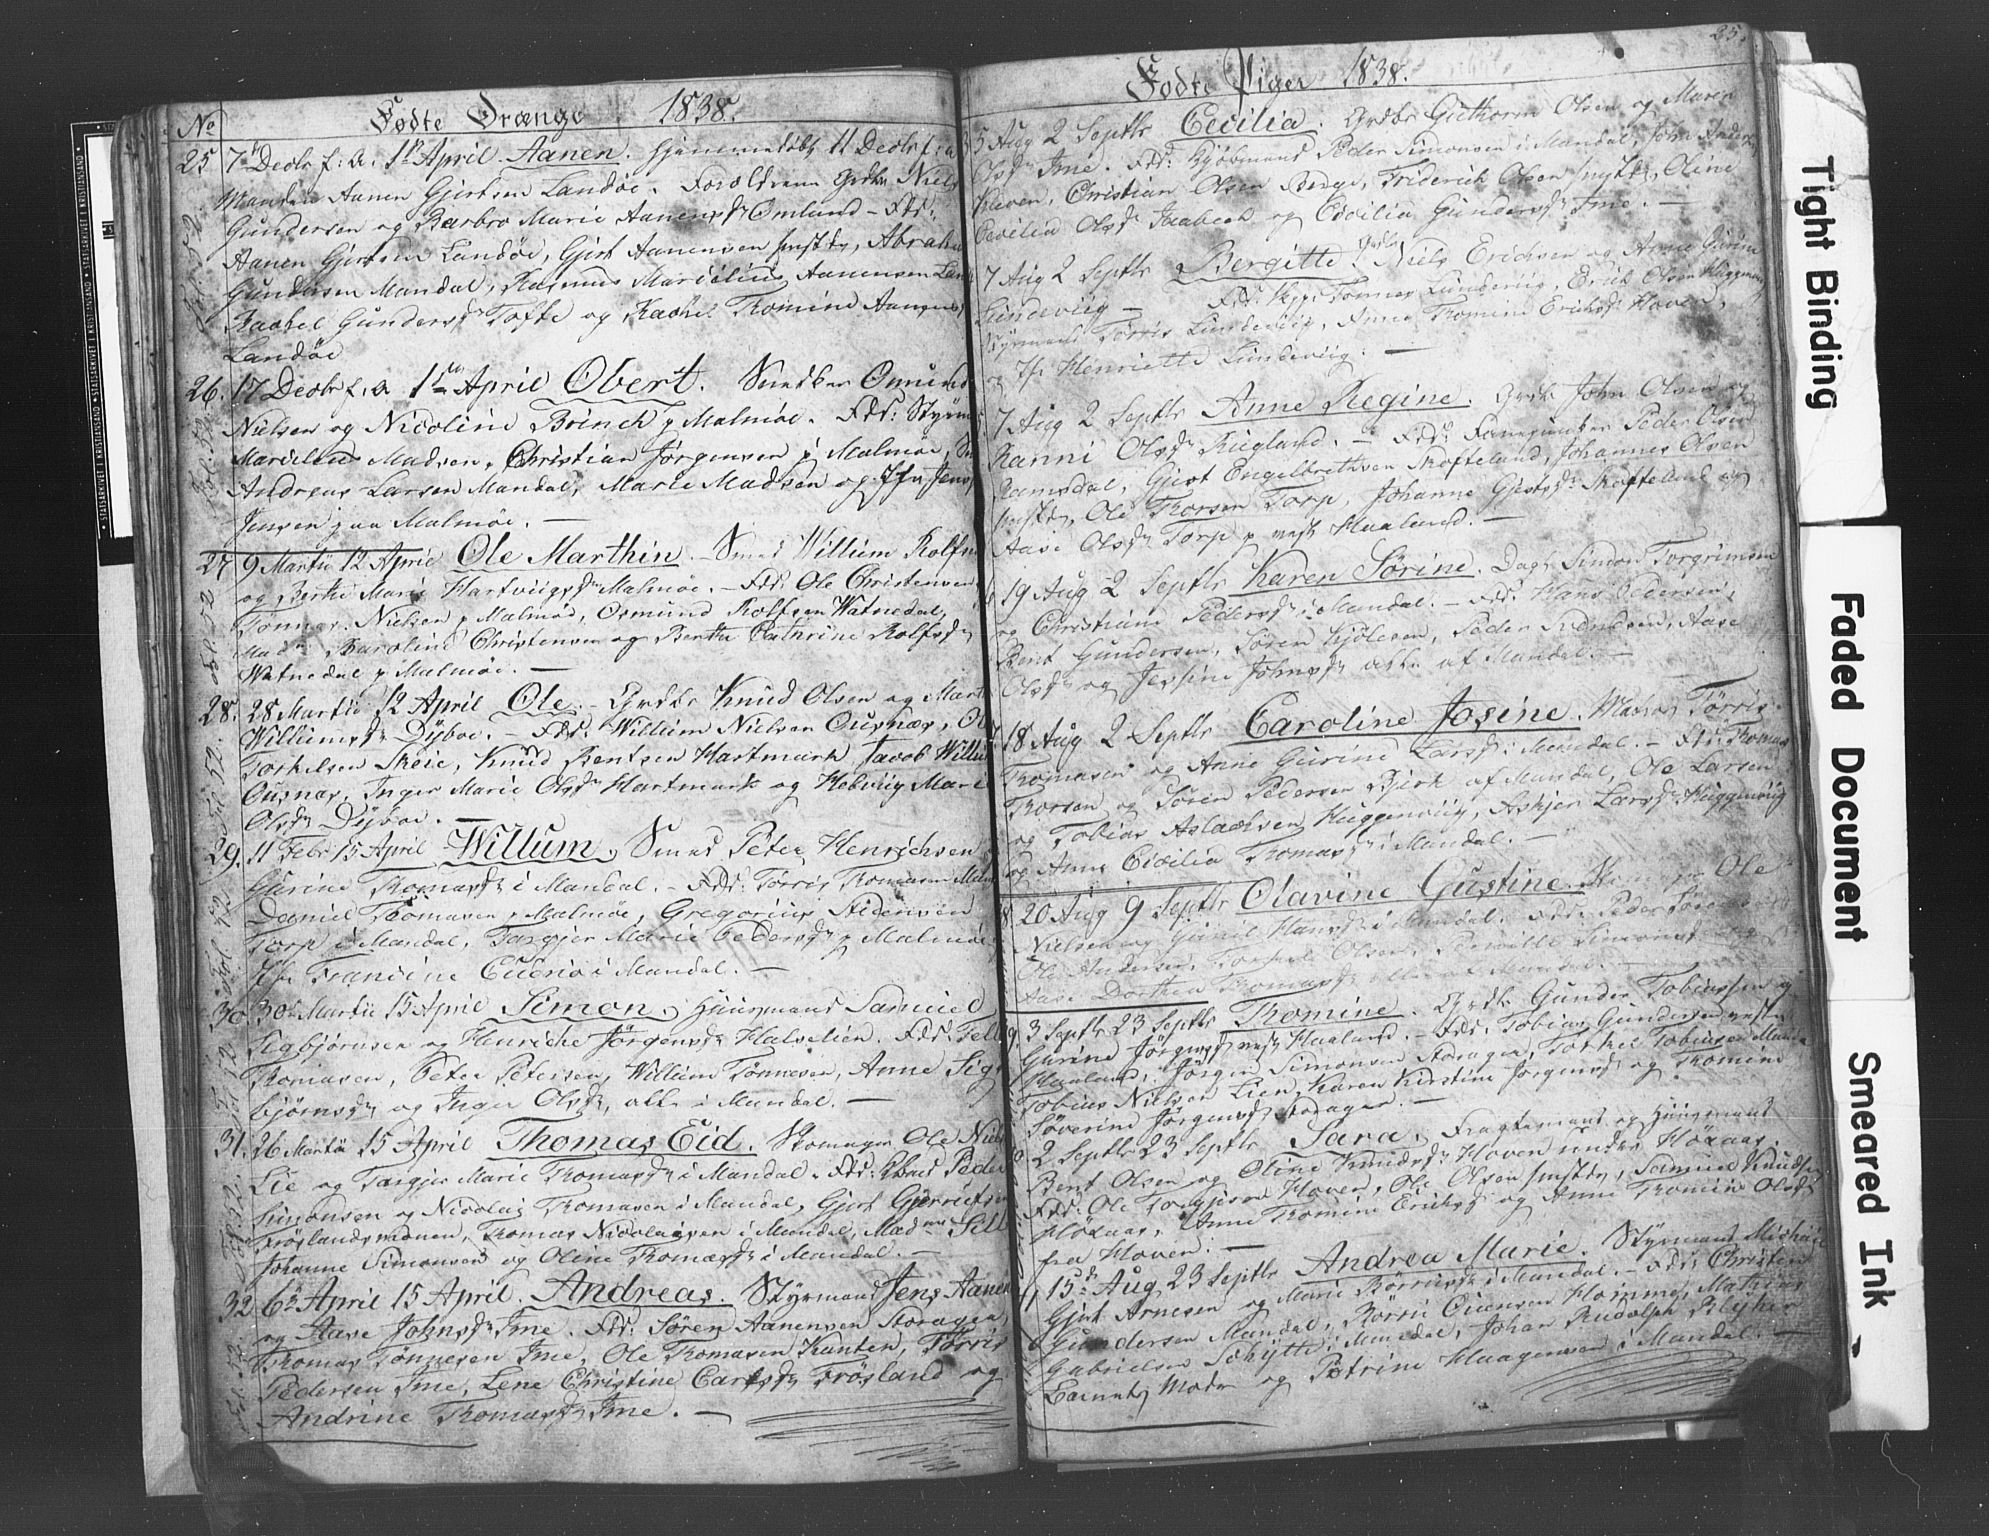 Fødte Drænge 1838.
No
25 7de Decbr f: a. 1ste April. Aanen. Hjemmedøbt 11 Decbr f: a
Manden Aanen Gjertsen Landøe. Forældrene Grdbr Niels
Gundersen og Barbro Marie Aanensdr Omland - Fdd:
Aanen Gjertsen Landøe, Gjert Aanensen smstds, Abraham
Gundersen Mandal, Rasmus Marcelius Aanensen
Rachel Gundersdr Tofte og Rachel Thomine Aanensdr
Landøe
26. 17 Decbr f: a 1ste April Obert. Snedker Omund
Nielsen og Nicoline Brinch p Malmøe. Fdd: Styrm:
Marcelius Madsen, Christian Jørgensen p Malmøe,
Andreas Larsen Mandal, Marie Madsen og Jfr
Jensen paa Malmøe. —
27 9 Martii 12 April Ole Marthin. Smed Willum Rolfsen
og Berthe Marie Hartvigsdr Malmøe. - Fdd: Ole Christensen
Tønnes Nielsen p Malmøe, Osmund Rolfsen Watnedal,
Madm Caroline Christensen og Berthe Cathrine Rolfsdr
Watnedal p Malmøe. —
28. 28 Martii 12 April Ole. - Grdbr Knud Olsen og Marthe
Willumsdr Dyboe. - Fdd: Willum Nielsen Ousnæs, Ole
Torkelsen Skeie, Knud Bentsen Hartmark Jacob Willumsen
Ousnæs, Inger Marie Olsdr Hartmark og Helwig Marie
Olsdr Dyboe. —
29. 11 Febr 15 April Willum. Smed Peter Henrichsen
Gurine Thomasdr i Mandal. - Fdd: Tørris Thomasen
Daniel Thomasen p Malmøe, Gregorius
Torp i Mandal, Targjer Marie Pedersdr p Malmøe
Jfr Francine i Mandal. —
30. 30te Martii 15 April Simon. Huusmand Samuel
Sigbjørnsen og Henriche Jørgensdr Halvelien. Fdd:
Thomasen, Peter Petersen, Willum Tønnesen, Anne Sig-
bjørnsdr og Inger Olsdr, alle i Mandal. —
31. 26 Martii 15 April Thomas Eid. Skomager Ole Niels
Lie og Targjer Marie Thomasdr i Mandal. Fdd: Kbmd Peder
Simonsen og Nicolai Thomasen i Mandal, Gjert
Frøslandsmoen, Thomas Nicolaisen i Mandal, Madme
Johanne Simonsen og Oline Thomasdr i Mandal. —
32. 6te April 15 April. Andreas. Styrmand Jens Aanensen
og Aase Johnsdr Ime. Fdd: Søren Aanensen Storager
Thomas Tønnesen Ime, Ole Thomasen Kanten, Tørris
Pedersen Ime, Lene Christine Carlsdr Frøsland og
Andrine Thomasdr Ime. —
Fol. 52
25.
Fødte Piger 1838.
5 Aug 2 Septbr Cecilia. Grdbr Guthorm Olsen og Maren
Olsdr Ime. Fdd: Kjøbmand Peder Simonsen i Mandal, John
Haven, Christian Olsen Berge, Friderich Olsen smstds, Oline
Cecilia Olsdr og Cecilia Gundersdr Ime. —
7 Aug 2 Septbr Bergitte. Grdbr Niels Erichsen og Anne Gurine
Lundeviig — Fdd: Skpr Tønnes Lundeviig, Erich Olsen
Styrmand Tørris Lundeviig, Anne Thomine Erichsdr Hoven,
og Jfr Henriette Lundeviig. —
7 Aug 2 Septbr Anne Regine. Grdbr John Olsen og
Ranni Olsdr Rugland. - Fdd: Peder Olsen
Ramsdal, Gjert Engelbrethsen Skofteland, Johannes Olsen
smstds, Ole Thorsen Torp, Johanne Gjertsdr Skofteland og
Aase Olsdr Torp p vest Haaland. —
19 Aug 2 Septbr Karen Sørine. Dagl Simon Torgrimsen
og Christine Pedersdr i Mandal. - Fdd: Hans Pedersen,
Bent Gundersen, Søren, Peder, Aase
Olsdr og Jessine Johnsdr alle af Mandal. —
18 Aug 2 Septbr Caroline Josine. Matros Tørris
Thomasen og Anne Gurine Larsdr i Mandal. - Fdd: Thomas
Thorsen og Søren Pedersen Bjerk af Mandal, Ole Larsen
og Tobias Aslachsen Huggenviig, Askjer Larsdr Huggenviig
og Anne Cicilia Thomasdr i Mandal. —
20 Aug 9 Septbr Olavine Gustine. Ole
Nielsen og Gunil Hansdr i Mandal. Fdd: Peder
Ole Andersen, Torkel Olsen, Pernille
Aase Dorthea Thomasdr alle af Mandal. —
3 Septbr 23 Septbr Thomine. Grdbr Gunder Tobiassen og
Gurine Jørgensdr vest Haaland. - Fdd: Tobias Gundersen vestre
Haaland, Jørgen Simonsen Storager, Torkel Tobiassen
Tobias Nielsen Lien, Karen Kirstine Jørgensdr og Thomine
Søverine Jørgensdr Storager. —
2 Septbr 23 Septbr Sara. Fragtemand og Huusmand
Bent Olsen og Oline Knudsdr Hoven under Høxaas.
Fdd: Ole Torgjersen Hoven, Ole Olsen smstds, Samuel Knudsen
Høxaas, Anne Thomine Ericksdr og Anne Thomine Olsdr
fra Hoven. —
15de Aug 23 Septbr Andrea Marie. Styrmand Michael
Gjert Arnesen og Marie i Mandal. - Fdd: Christen
Gundersen Mandal, Holmme, Mathias
Gabrielsen Schytte i Mandal, Johan Rudolph
Barnets Moder og Petrine Haagensen i Mandal. —
Tight Binding
Faded Document
Smeared Ink
STATSARKIVET I KRISTIANSAND